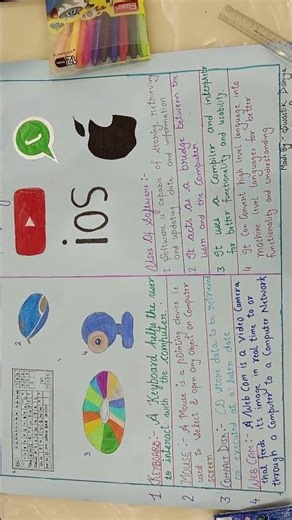 iOS
Uses of Software:-
1 Software is capable of storing, retrieving
and updating data and information
2 It acts as a bridge between the
user and the Computer
3 It uses a Combiler and interpreter
for better functionality and usability.
4 It can Convert high level language into
machine level languages for better
functionality and understanding
Made by - Swastik
1
2
3
4
1 KEYBOARD:- A Keyboard helps the user
to interact with the computer.
2 MOUSE:- A Mouse is a pointing device is
used to select & open any object on Computer
screen
3 COMPACT DISK:- CD store data to be retrieved
executed at a later date
4 WEB CAM:- A Web Cam is a video Camera
that feeds its image in real time to or
through a Computer to a Computer Network